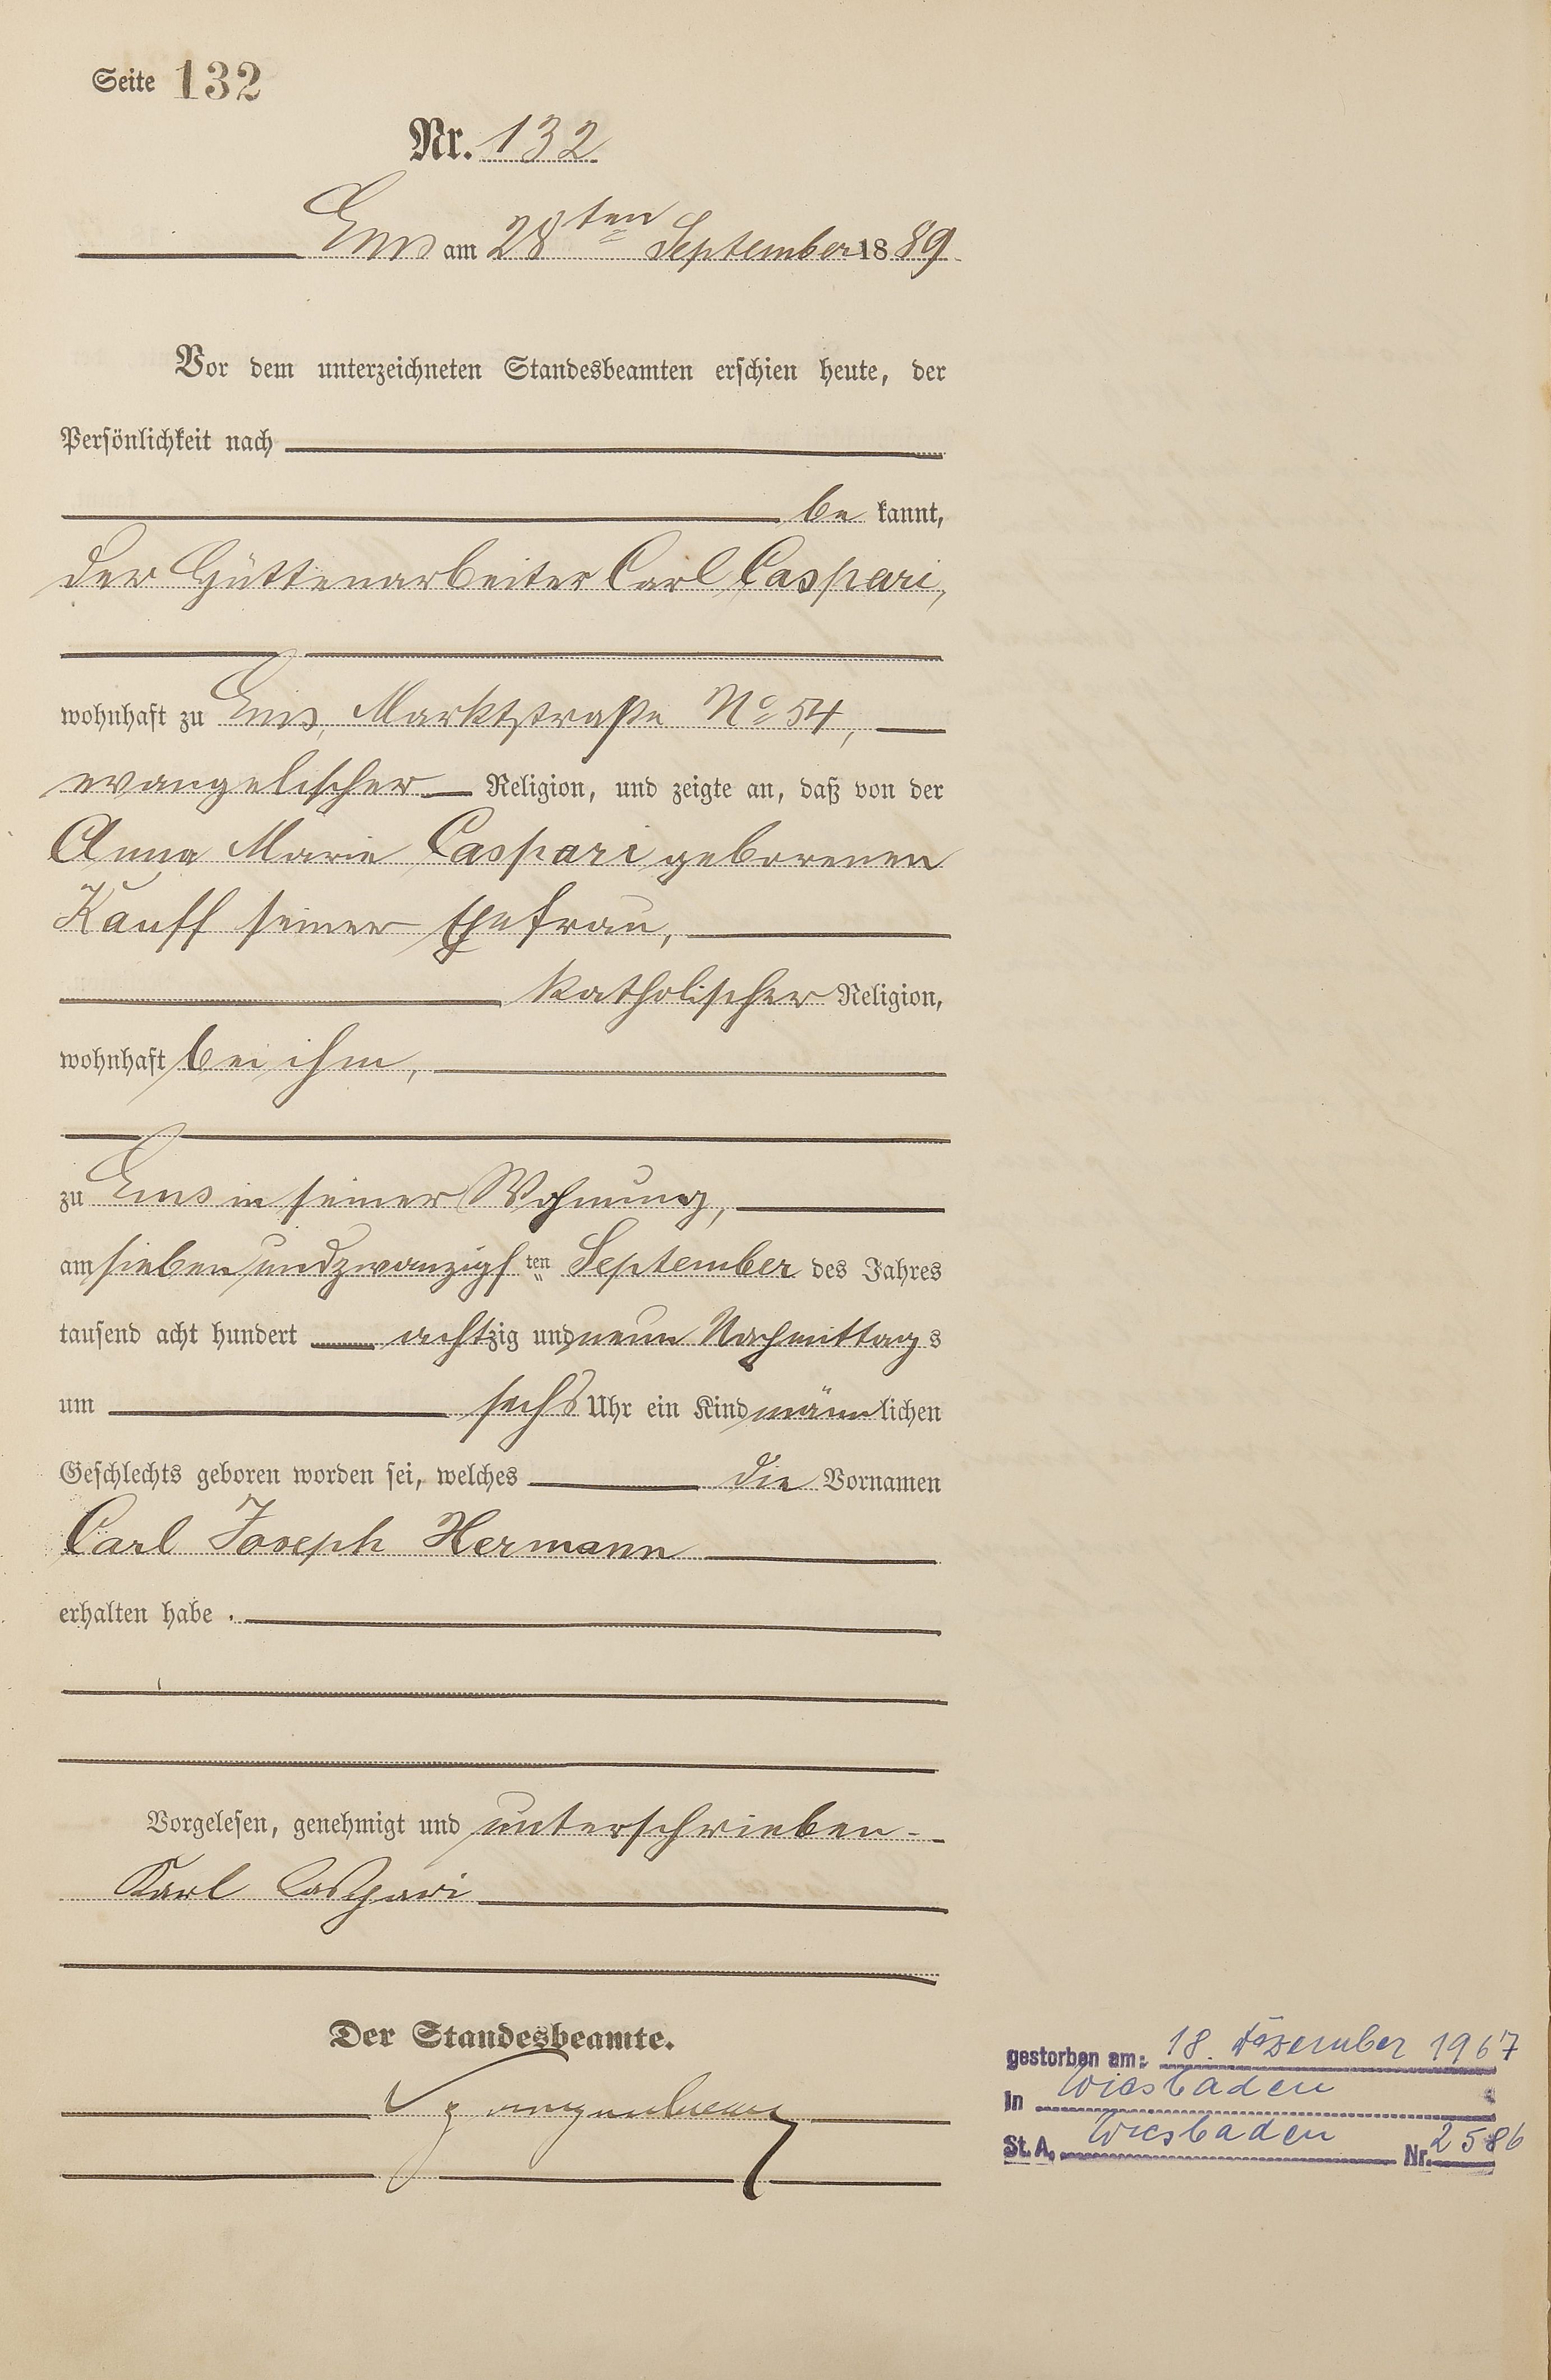 Seite 132
Nr. 132
Ems am 28ten September 1889.
Vor dem unterzeichneten Standesbeamten erschien heute, der
Persönlichkeit nach
be kannt,
der Hüttenarbeiter Carl Caspari,
wohnhaft zu Ems, Marktstraße No 54,
evangelischer Religion, und zeigte an, daß von der
Anna Marie Caspari geborenen
Kauff seiner Ehefrau,
katholischer Religion,
wohnhaft bei ihm,
zu Ems in seiner Wohnung,
am siebenundzwanzigsten September des Jahres
tausend acht hundert achtzig und neun Nachmittags
um sechs Uhr ein Kind männlichen
Geschlechts geboren worden sei, welches die Vornamen
Carl Joseph Hermann
erhalten habe.
Vorgelesen, genehmigt und unterschrieben
Karl Caspari
Der Standesbeamte.
gestorben am: 18. Dezember 1967
in Wiesbaden
St. A. Wiesbaden Nr. 2586